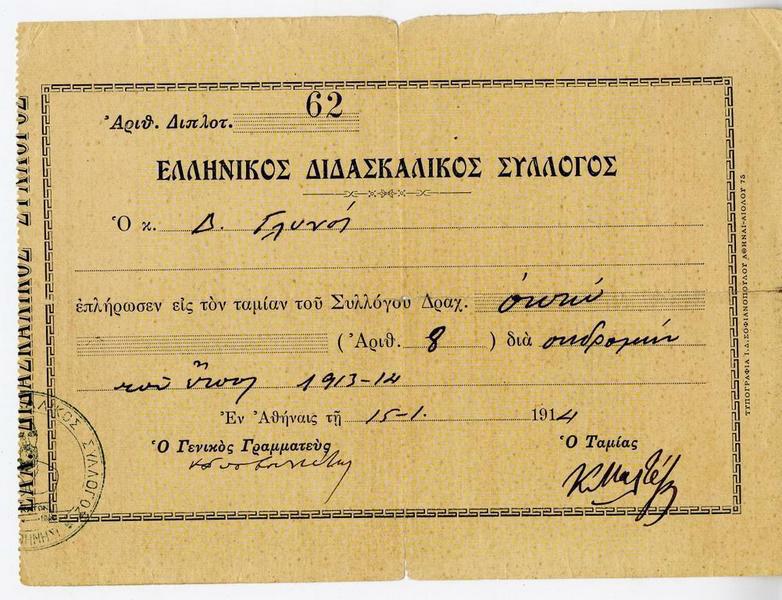 Ἀριθ. Διπλοτ. 62
ΕΛΛΗΝΙΚΟΣ ΔΙΔΑΣΚΑΛΙΚΟΣ ΣΥΛΛΟΓΟΣ
Ὁ κ. Δ. Γληνός
ἐπλήρωσεν εἰς τὸν ταμίαν τοῦ Συλλόγου Δραχ. ὀκτώ
(Ἀριθ. 8 ) διὰ συνδρομήν
τοῦ ἔτους 1913-14
Ἐν Ἀθήναις τῇ 15-1. 1914
Ὁ Γενικὸς Γραμματεὺς
Ὁ Ταμίας
ΤΥΠΟΓΡΑΦΙΑ Ι.Δ.ΣΟΦΙΑΝΟΠΟΥΛΟΥ ΑΘΗΝΑΙ-ΑΙΟΛΟΥ 75
ΔΙΔΑΣΚΑΛΙΚΟΣ ΣΥΛΛΟΓΟΣ
ΣΥΛΛΟΓΟΣ